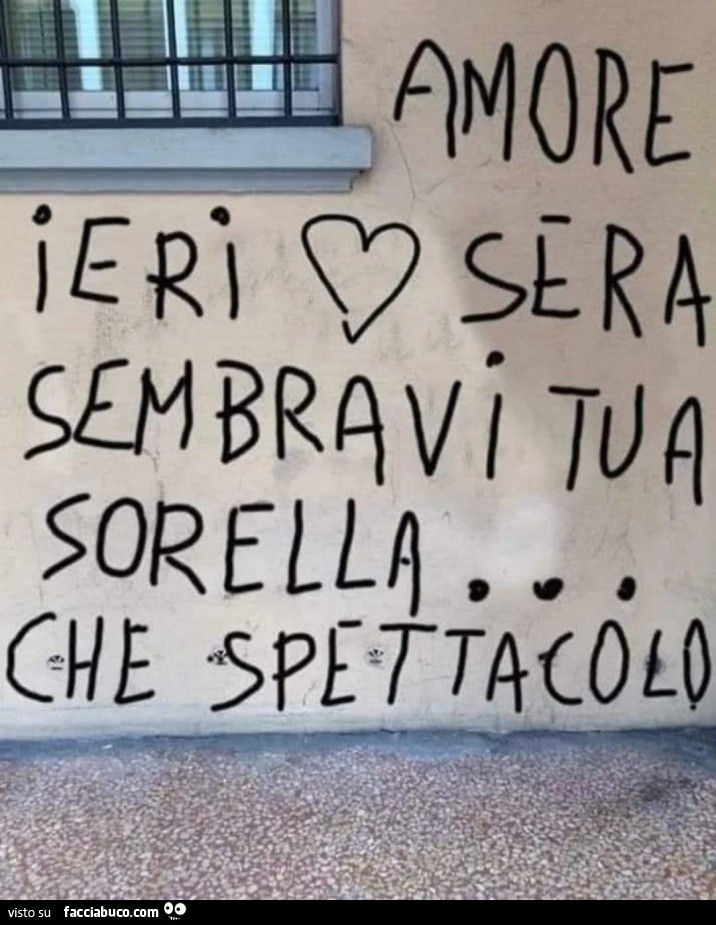 AMORE
iERi ♡ SERA
SEMBRAVi TUA
SORELLA...
CHE SPETTACOLO
visto su facciabuco.com